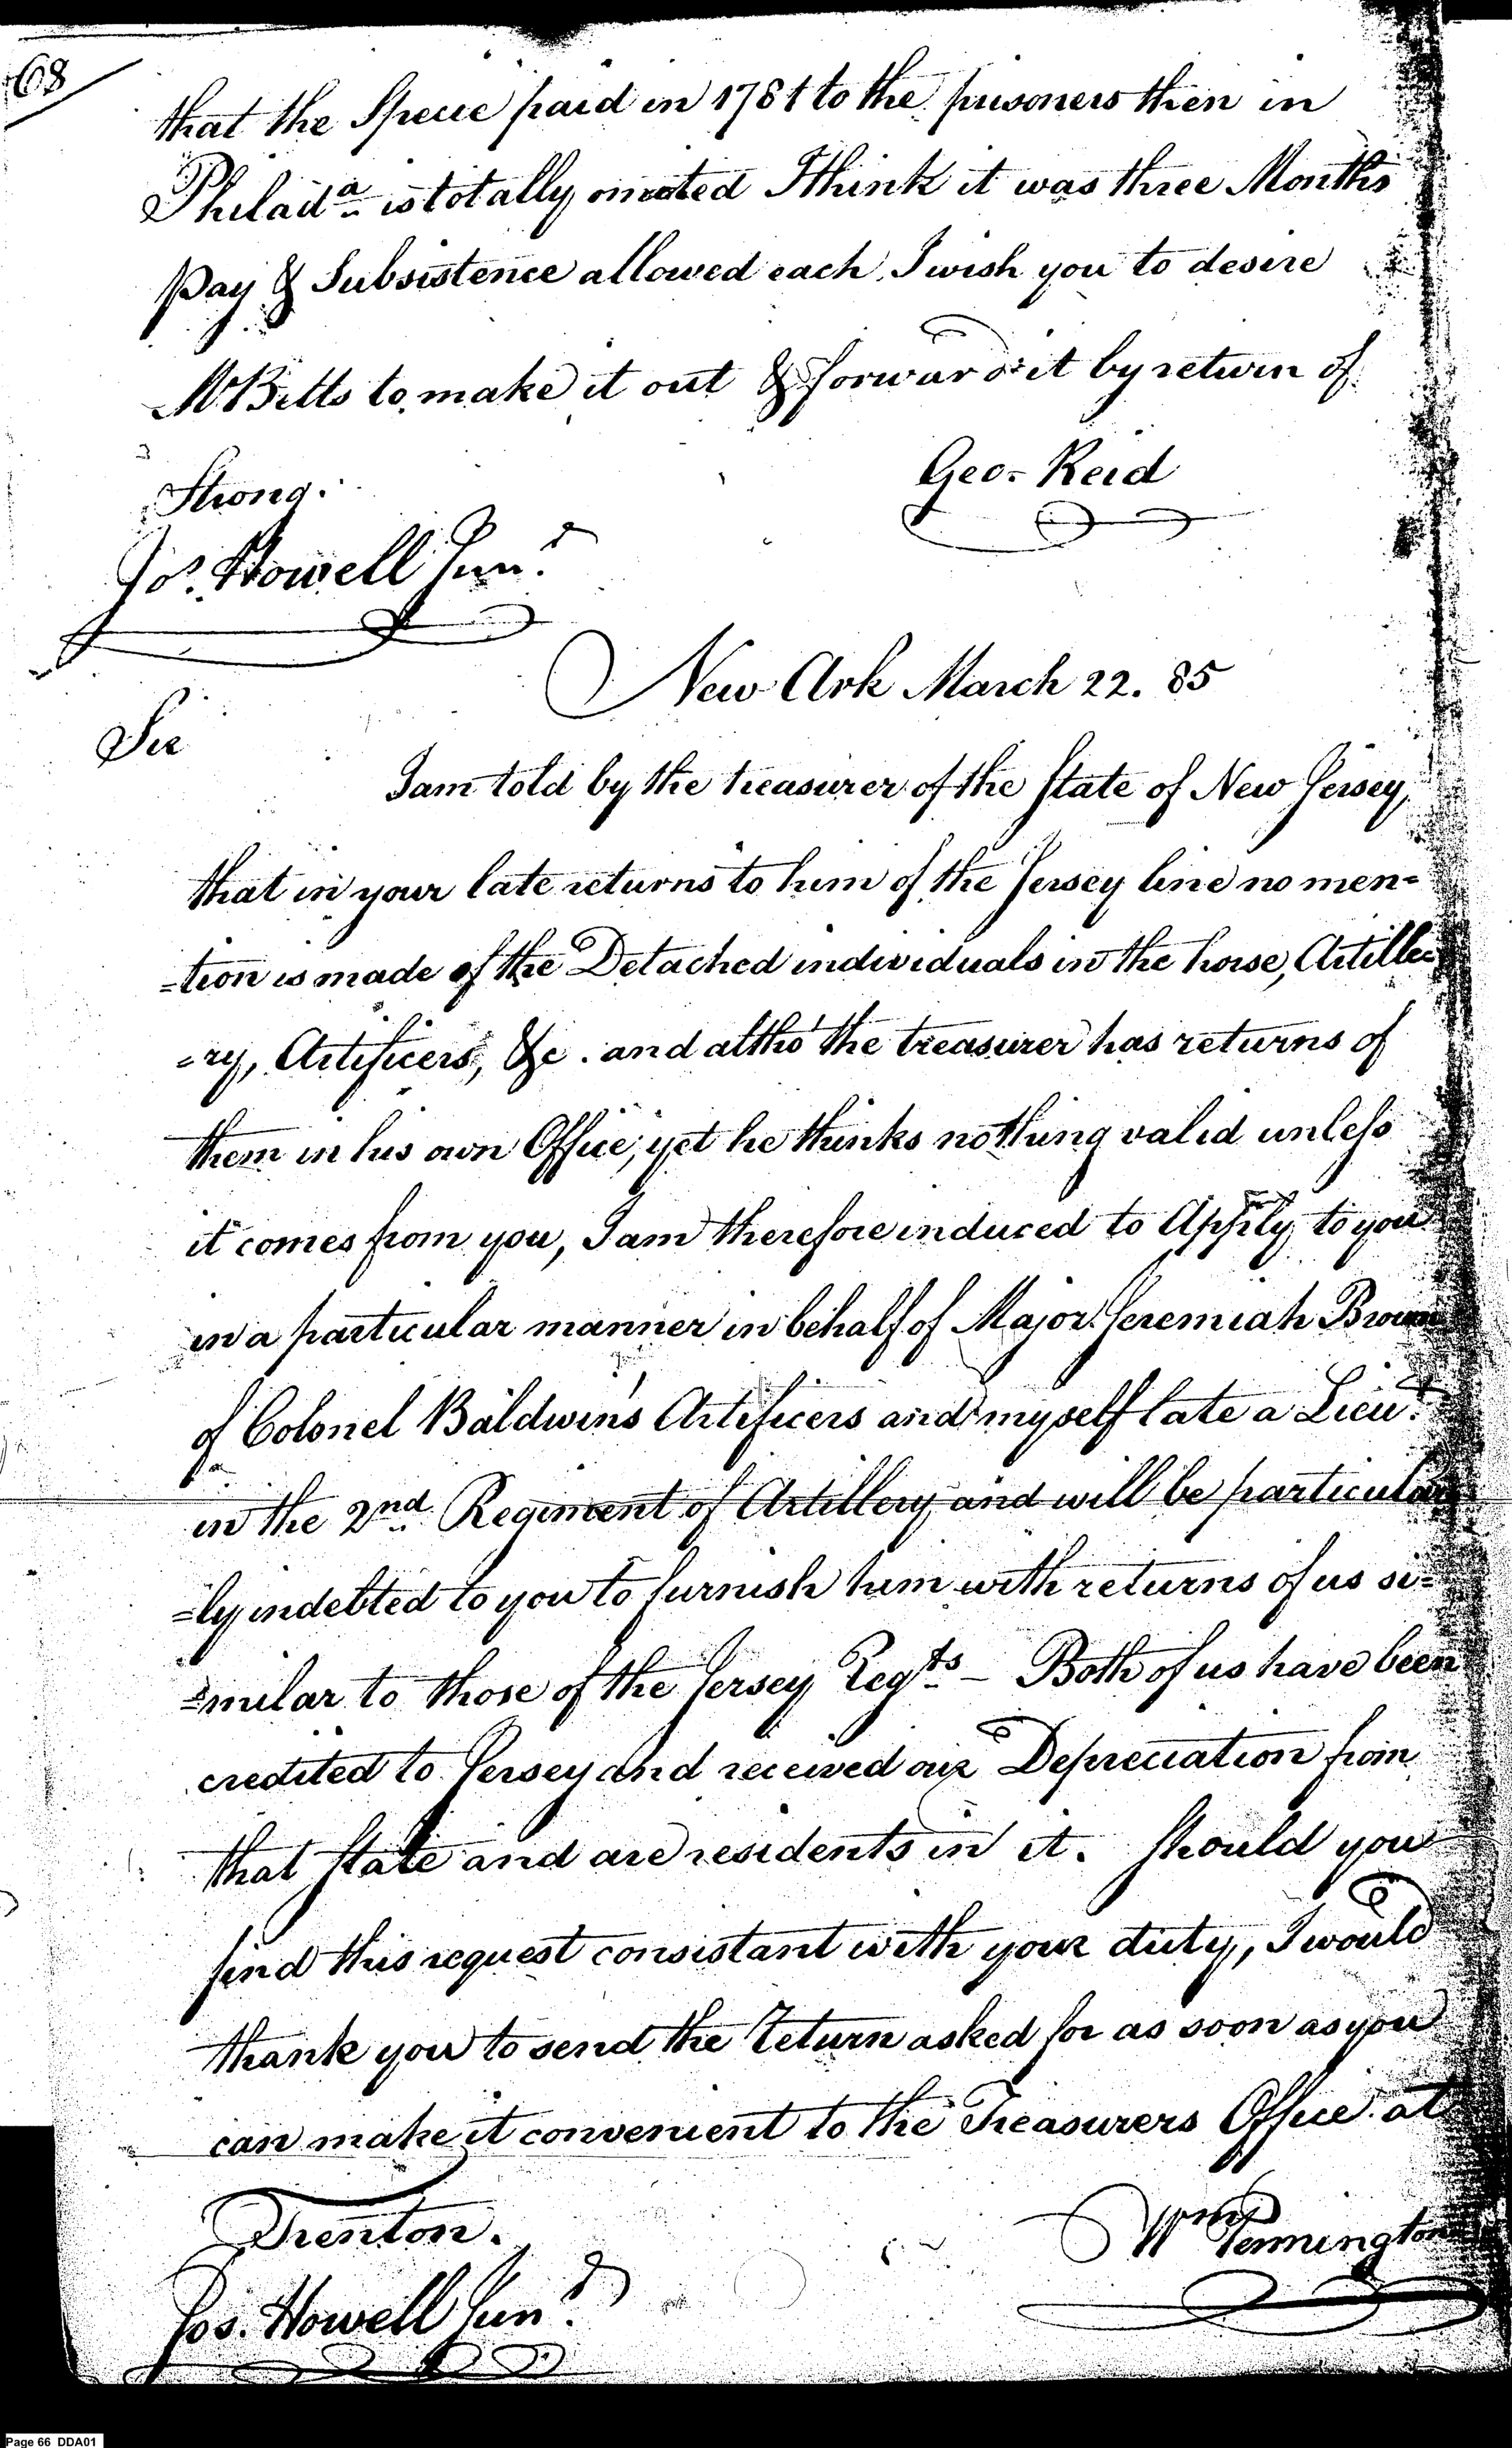 68
that the Specie paid in 1781 to the prisoners then in
Philadª is totally omited I think it was three Months
Pay & Subsistence allowed each, I wish you to desire
Mr Betts to make it out & forward it by return of
Strong.
Geo= Reid
Jos. Howell Junr
New Ark March 22. 85
Sir
I am told by the treasurer of the State of New Jersey,
that in your late returns to him of the Jersey line no men=
=tion is made of the Detached individuals in the horse, Artille=
=ry, Artificers, &c. and altho' the treasurer has returns of
them in his own Office, yet he thinks nothing valid unless
it comes from you, I am therefore induced to Apply to you
in a particular manner in behalf of Major Jeremiah Brown
of Colonel Baldwin's Artificers and myself late a Lieut.
in the 2nd Regiment of Artillery and will be particular
=ly indebted to you to furnish him with returns of us si=
=milar to those of the Jersey Regts – Both of us have been
credited to Jersey and received our Depreciation from
that State and are residents in it. Should you
find this request consistant with your duty, I would
thank you to send the Return asked for as soon as you
can make it convenient to the Treasurers Office at
Trenton.
Wm Pennington
Jos. Howell Junr
Page 66 DDA01